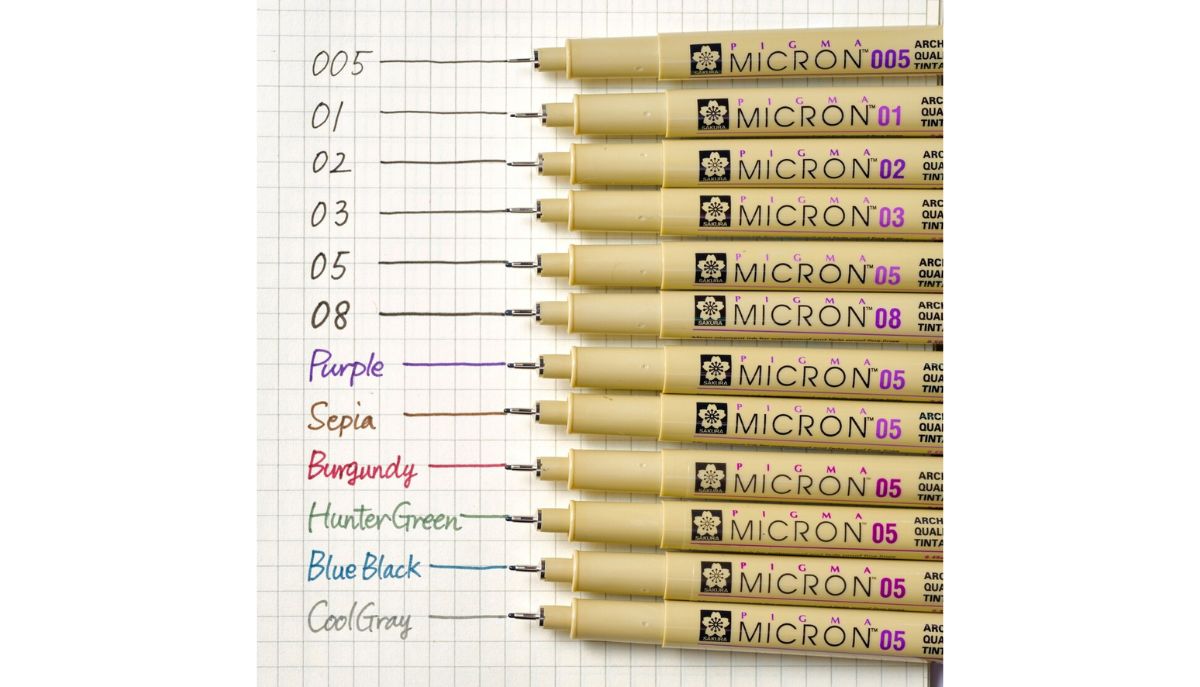 005 PIGMA MICRON™ 005 ARCH QUAL TINTA
01 PIGMA MICRON™ 01 ARC QUA TINT
02 PIGMA MICRON™ 02 ARC QUA TINT
03 PIGMA MICRON™ 03 ARC QUA TINT
05 SAKURA PIGMA MICRON™ 05 ARCH QUAL TINTA
08 SAKURA PIGMA MICRON™ 08 ARCH QUAL TINTA
Purple SAKURA PIGMA MICRON™ 05 ARCH QUAL TINTA
Sepia SAKURA PIGMA MICRON™ 05 ARCH QUAL TINTA
Burgundy PIGMA MICRON™ 05 ARCH QUAL TINTA
Hunter Green PIGMA MICRON™ 05 ARCH QUAL TINTA
Blue Black PIGMA MICRON™ 05 ARC QUA TINT
Cool Gray SAKURA PIGMA MICRON™ 05 ARC QUA TINT